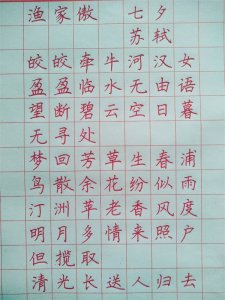 渔家傲 七夕
苏轼
皎皎牵牛河汉女
盈盈临水无由语
望断碧云空日暮
无寻处
梦回芳草生春浦
鸟散余花纷似雨
汀洲苹老香风度
明月多情来照户
但揽取
清光长送人归去